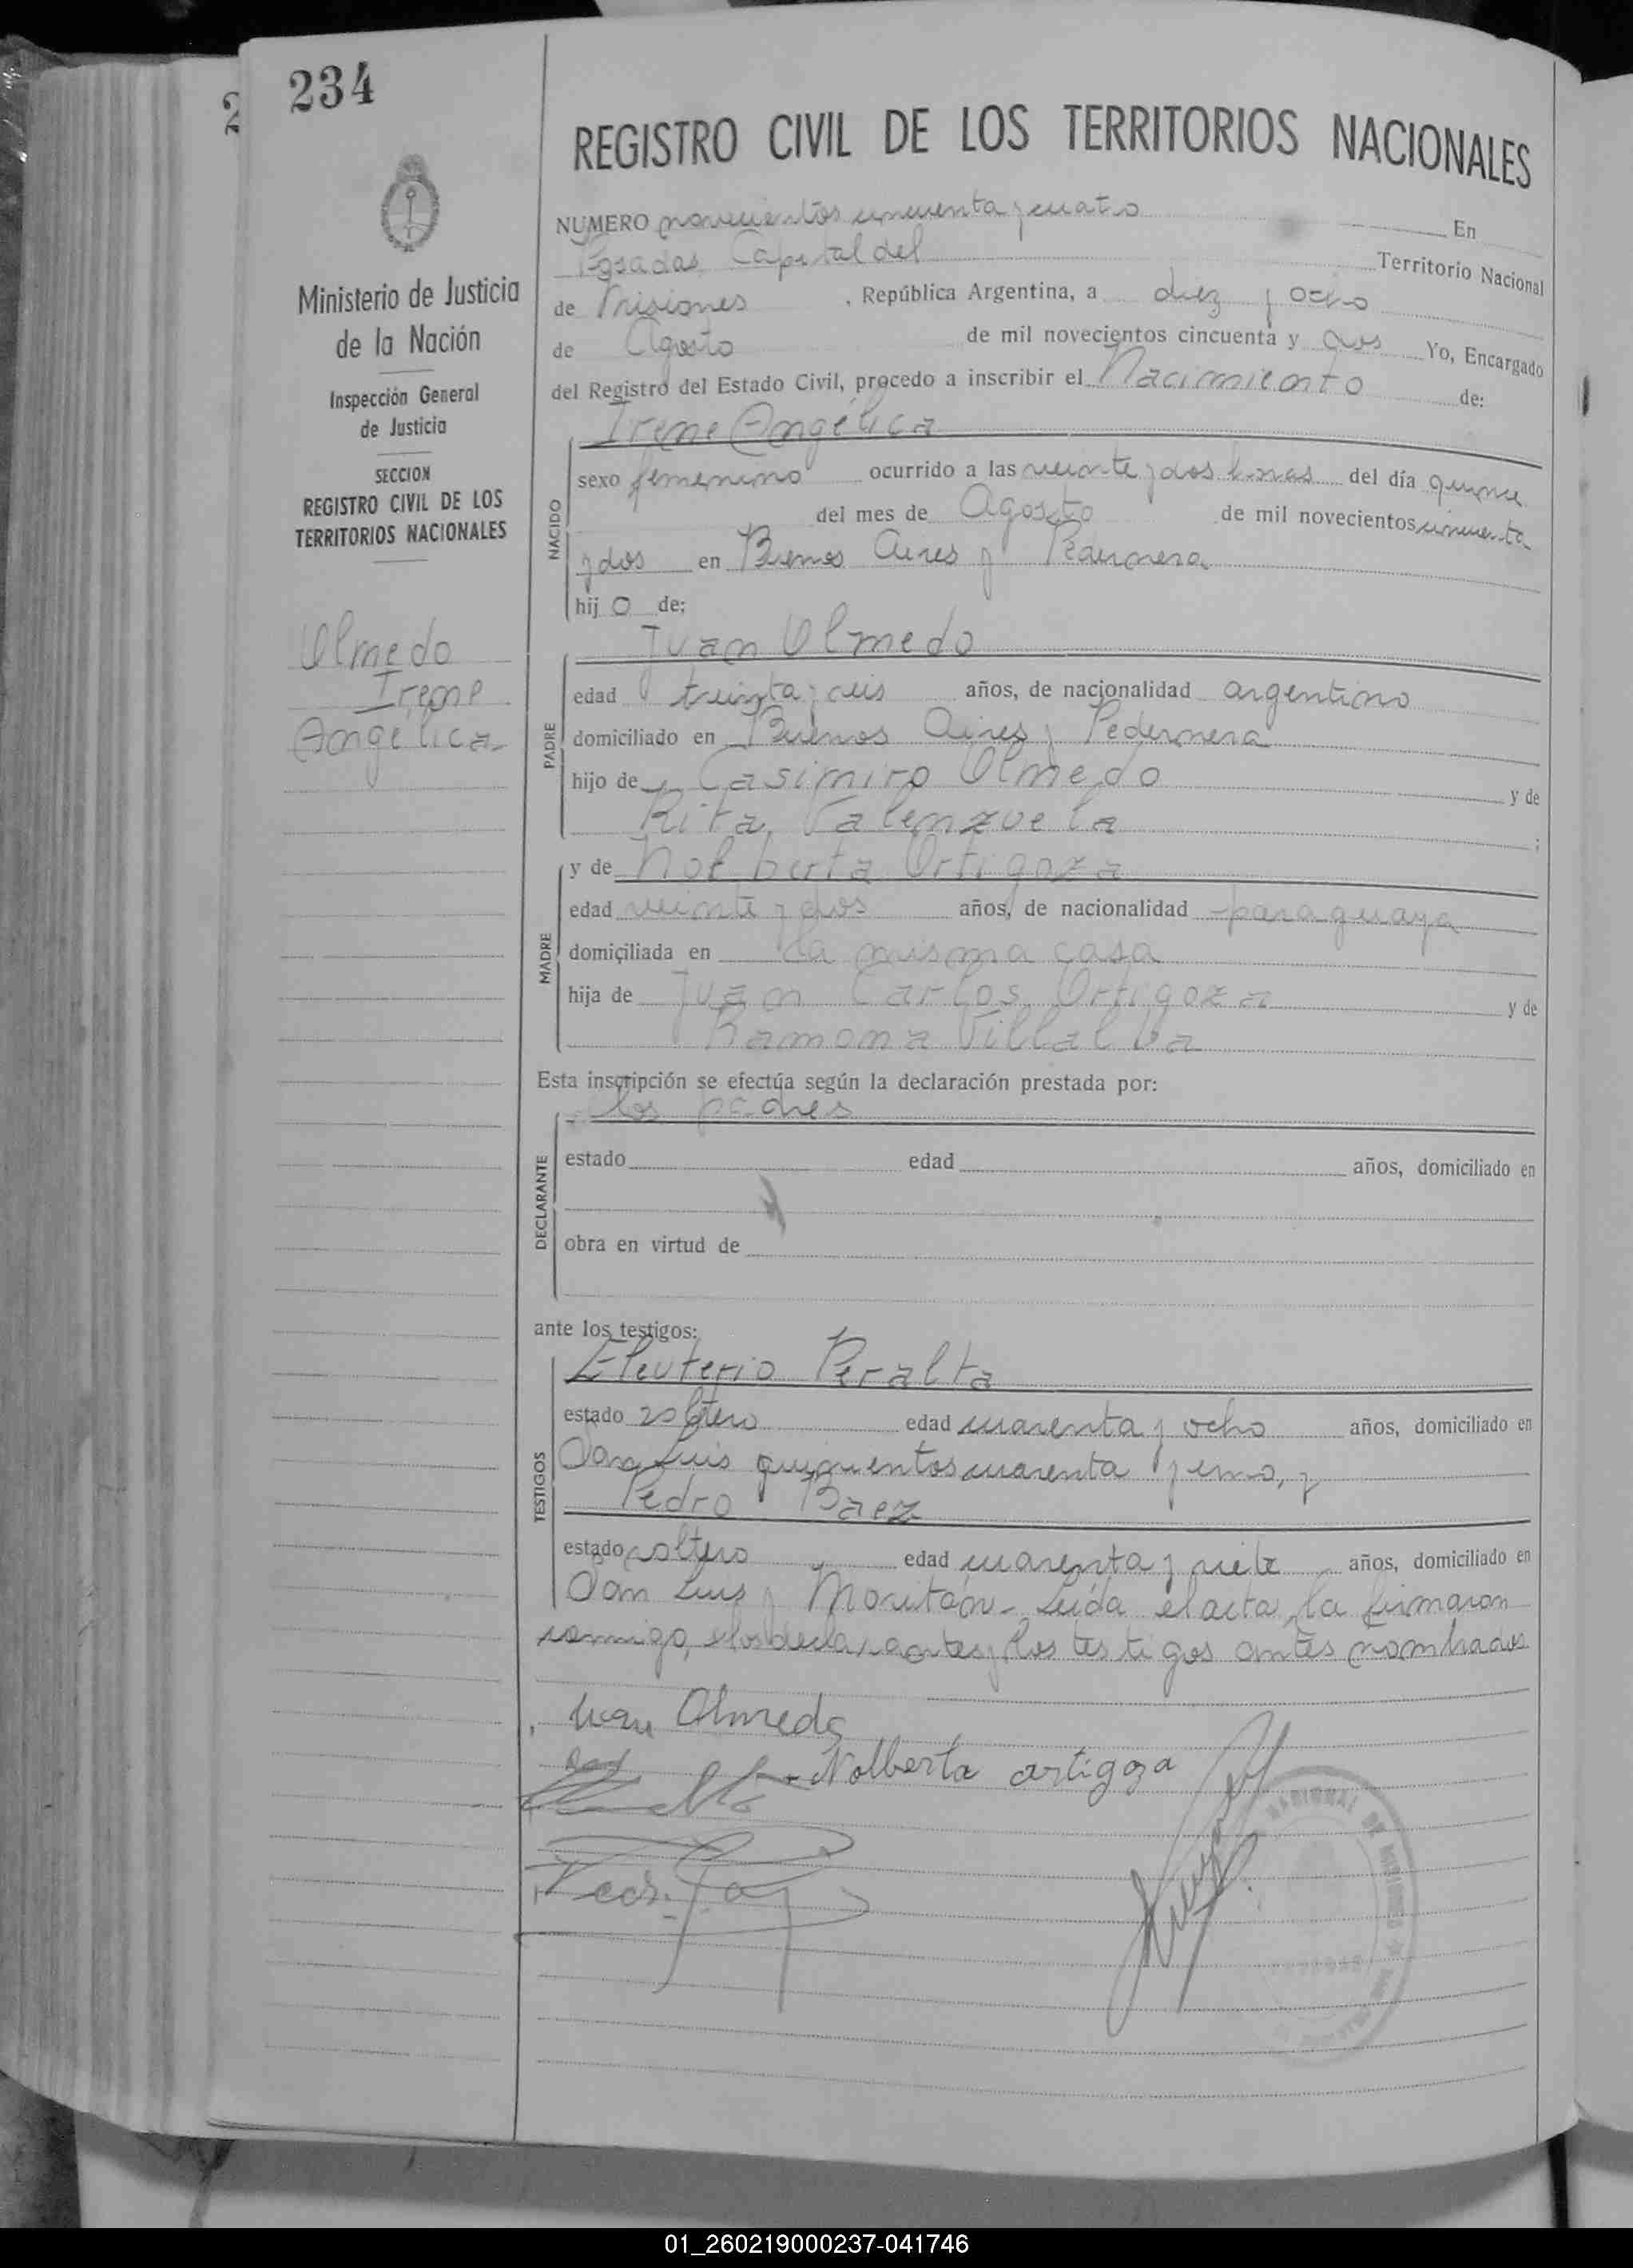 234
REGISTRO CIVIL DE LOS TERRITORIOS NACIONALES
Ministerio de Justicia
de la Nación
Inspección General
de Justicia
SECCION
REGISTRO CIVIL DE LOS
TERRITORIOS NACIONALES
Olmedo
Irene
Angélica
NUMERO novecientos cincuenta y cuatro En
Posadas, Capital del Territorio Nacional
de Misiones, República Argentina, a diez y ocho
de Agosto de mil novecientos cincuenta y dos Yo, Encargado
del Registro del Estado Civil, procedo a inscribir el Nacimiento de:
Irene Angélica
NACIDO
sexo femenino ocurrido a las veinte y dos horas del día quince
del mes de Agosto de mil novecientos cincuenta
y dos en Buenos Aires y Pedernera
hijo de:
Juan Olmedo
PADRE
edad treinta y seis años, de nacionalidad argentino
domiciliado en Buenos Aires y Pedernera
hijo de Casimiro Olmedo y de
Rita Valenzuela;
MADRE
y de Nolberta Ortigoza
edad veinte y dos años, de nacionalidad paraguaya
domiciliada en la misma casa
hija de Juan Carlos Ortigoza y de
Ramona Villalba
Esta inscripción se efectúa según la declaración prestada por:
los padres
DECLARANTE
estado edad años, domiciliado en
obra en virtud de
ante los testigos:
Eleuterio Peralta
TESTIGOS
estado soltero edad cuarenta y ocho años, domiciliado en
San Luis quinientos cuarenta y uno, y
Pedro Baez
estado soltero edad cuarenta y siete años, domiciliado en
San Luis y Moritán- Leída el acta, la firmaron
conmigo, los declarantes y los testigos antes nombrados
Juan Olmedo
Nolberta ortigoza
01_260219000237-041746